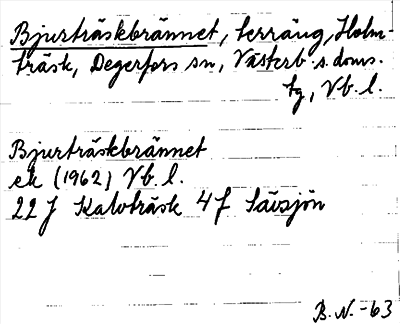 Bjurträskbrännet, terräng, Holm-
träsk, Degerfors sn, Västerb. s. doms.
tg, Vb. l.
Bjurträskbrännet
ek (1962) Vb. l.
22 J Kalvträsk 4 f Sävsjön
B.N.-63